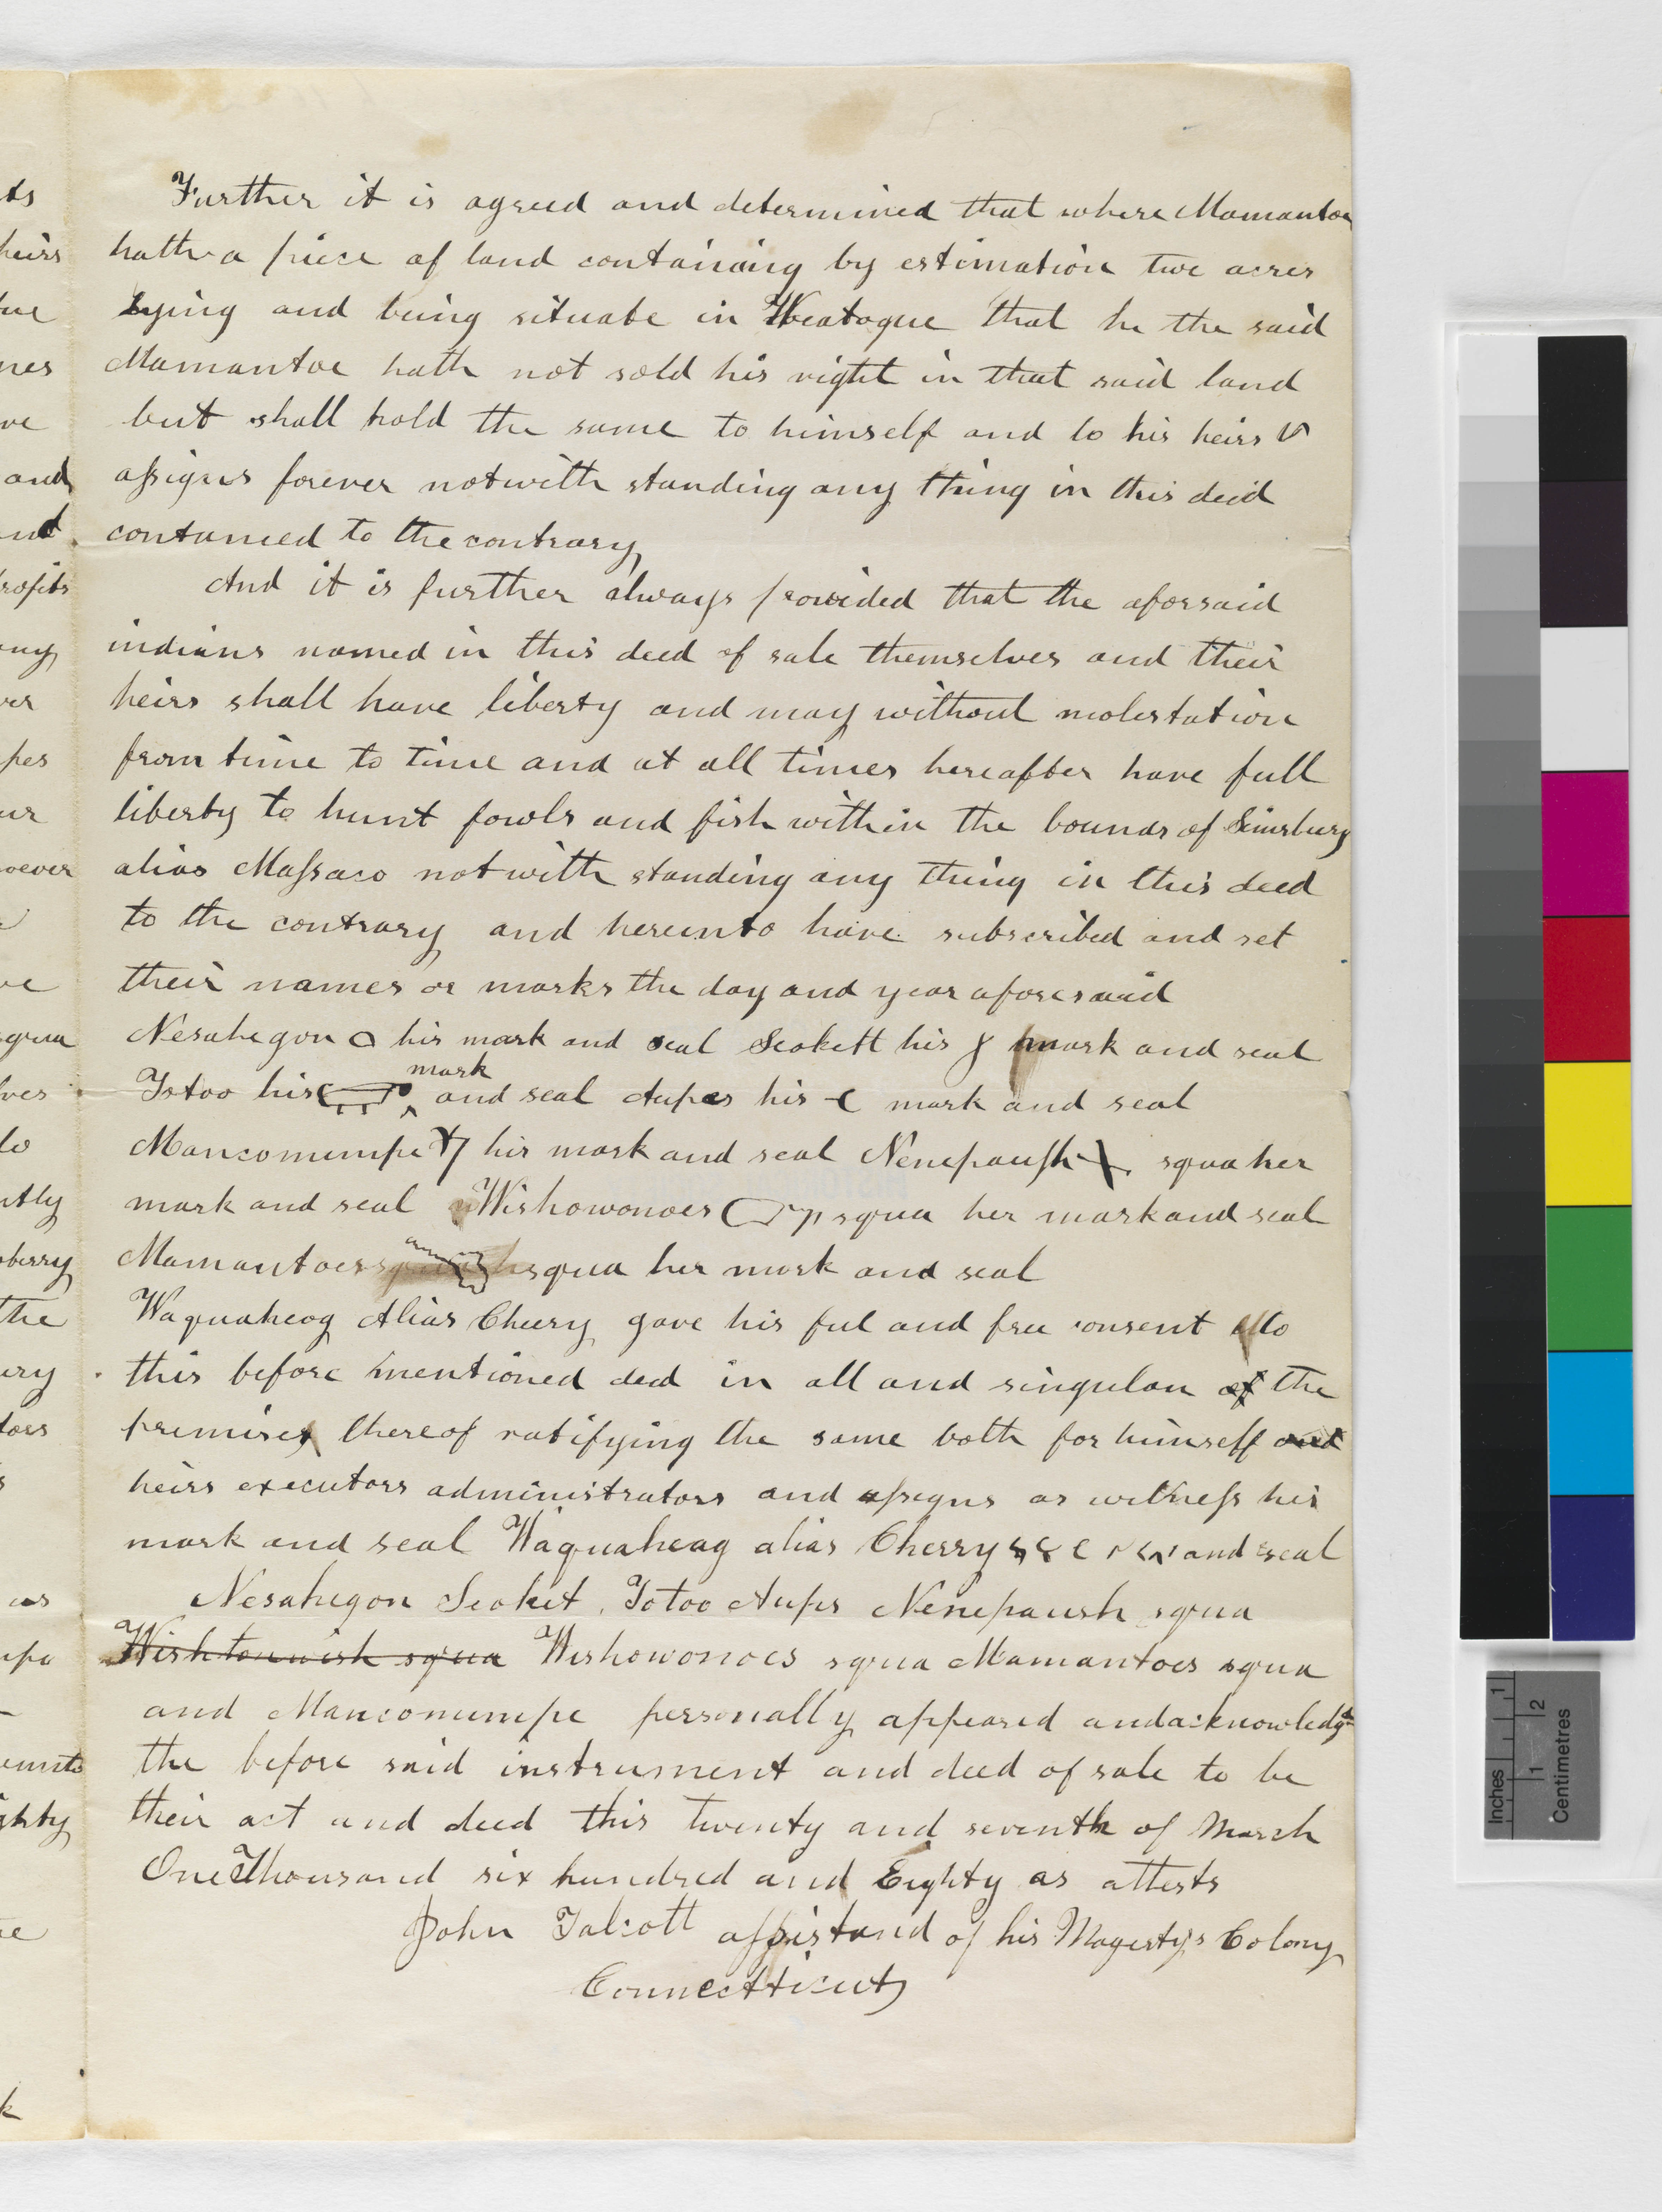 Further it is agreed and determined that where Mamantoe
hath a piece of land containing by estimation two acres
Lying and being situate in Weatogue that he the said
Mamantoe hath not sold his right in that said land
but shall hold the same to himself and to his heirs &
assigns forever notwith standing any thing in this deed
contained to the contrary
And it is further always provided that the aforsaid
indians named in this deed of sale themselves and their
heirs shall have liberty and may without molestation
from time to time and at all times hereafter have full
liberty to hunt fowls and fish within the bounds of Simsbury
alias Massaco notwith standing any thing in this deed
to the contrary and hereunto have subscribed and set
their names or marks the day and year aforesaid
Nesahegon his mark and seal Seokett his mark and seal
Totoo his mark and seal Aupes his mark and seal
Mancomumpe his mark and seal Nenepaush squa her
mark and seal Wishowonoes squa her mark and seal
Mamantoes squa her mark and seal
Waquaheog Alias Cheery gave his ful and free consent to
this before mentioned ded in all and singular of the
premises thereof ratifying the same both for himself and
heirs executors administrators and assigns as witness his
mark and seal Waquaheag alias Cherry and seal
Nesahegon Seoket, Totoo Aups Nenepaush squa
Wishtonwish squa Wishowonoes squa Mamantoes squa
and Mancomumpe personally appeared and acknowledgd
the before said instrument and deed of sale to be
their act and deed this twenty and seventh of March
One Thousand six hundred and Eighty as attests
John Talcott assistand of his Magestys Colony
Connectticutt
ts
heirs
ve
and
rofits
pes
oever
squa
lves
to
ntly
berry
the
ury
tors
as
unto
ighty